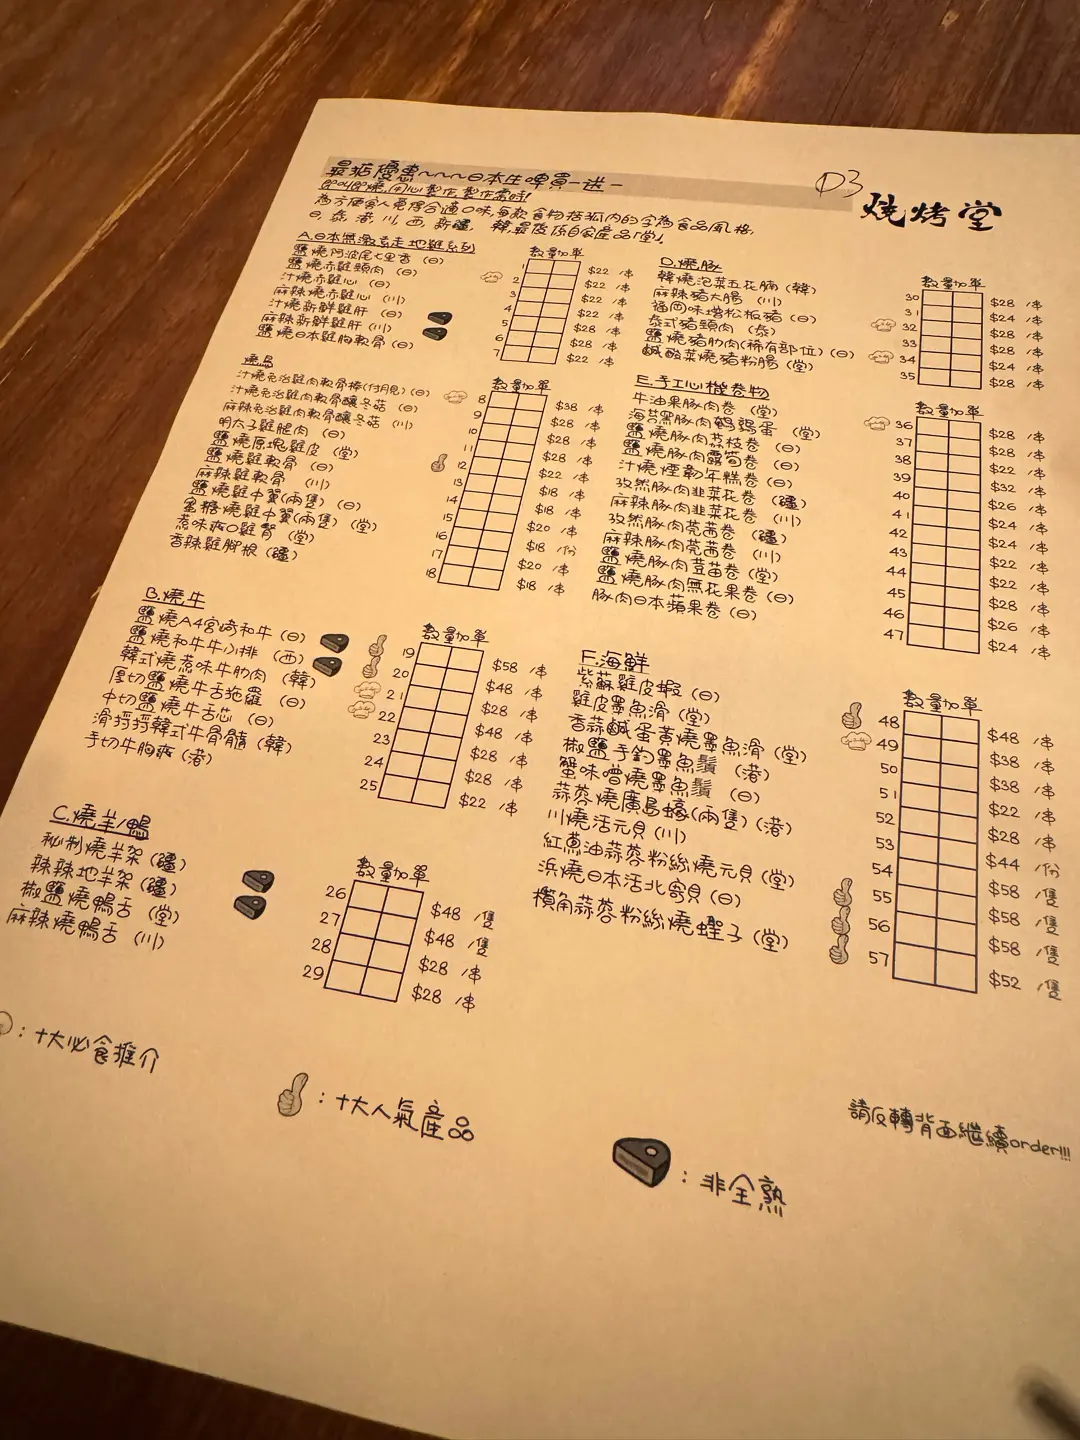 最抵優惠~~~日本生啤買一送一
即叫即燒,用心製作,製作需時!
為方便客人覓得合適口味,每款食物括弧內的字為食品風格,
日,泰,港,川,西,新疆,韓,最後係自家產品「堂」
D3
燒烤堂
A.日本無激素走地雞系列
數量加單
鹽燒阿波尾七里香 (日) 1 $22 /串
鹽燒赤雞頸肉 (日) 2 $22 /串
汁燒赤雞心 (日) 3 $22 /串
麻辣燒赤雞心 (川) 4 $22 /串
汁燒新鮮雞肝 (日) 5 $28 /串
麻辣新鮮雞肝 (川) 6 $28 /串
鹽燒日本雞胸軟骨 (日) 7 $22 /串
燒鳥
數量加單
汁燒免治雞肉軟骨棒(付月見) (日) 8 $38 /串
汁燒免治雞肉軟骨釀冬菇 (日) 9 $28 /串
麻辣免治雞肉軟骨釀冬菇 (川) 10 $28 /串
明太子雞腿肉 (日) 11 $28 /串
鹽燒原塊雞皮 (堂) 12 $22 /串
鹽燒雞軟骨 (日) 13 $18 /串
麻辣雞軟骨 (川) 14 $18 /串
鹽燒雞中翼(兩隻) (日) 15 $20 /串
蜜糖燒雞中翼(兩隻) (堂) 16 $18 /份
惹味爽口雞腎 (堂) 17 $20 /串
香辣雞腳根 (疆) 18 $18 /串
B.燒牛
數量加單
鹽燒A4宮崎和牛 (日) 19 $58 /串
鹽燒和牛牛小排 (西) 20 $48 /串
韓式燒惹味牛肋肉 (韓) 21 $28 /串
厚切鹽燒牛舌拖羅 (日) 22 $48 /串
中切鹽燒牛舌芯 (日) 23 $28 /串
滑捋捋韓式牛骨髓 (韓) 24 $28 /串
手切牛胸爽 (港) 25 $22 /串
C.燒羊/鴨
數量加單
秘制燒羊架 (疆) 26 $48 /隻
辣辣地羊架 (疆) 27 $48 /隻
椒鹽燒鴨舌 (堂) 28 $28 /串
麻辣燒鴨舌 (川) 29 $28 /串
D.燒豚
數量加單
韓燒泡菜五花腩 (韓) 30 $28 /串
麻辣豬大腸 (川) 31 $24 /串
福岡味噌松板豬 (日) 32 $28 /串
泰式豬頸肉 (泰) 33 $28 /串
鹽燒豬肋肉(稀有部位) (日) 34 $24 /串
鹹酸菜燒豬粉腸 (堂) 35 $28 /串
E.手工心機卷物
數量加單
牛油果豚肉卷 (堂) 36 $28 /串
海苔黑豚肉鵪鶉蛋 (堂) 37 $28 /串
鹽燒豚肉荔枝卷 (日) 38 $22 /串
鹽燒豚肉露筍卷 (日) 39 $32 /串
汁燒煙韌年糕卷 (日) 40 $26 /串
孜然豚肉韭菜花卷 (疆) 41 $24 /串
麻辣豚肉韭菜花卷 (川) 42 $24 /串
孜然豚肉莞茜卷 (疆) 43 $22 /串
麻辣豚肉莞茜卷 (川) 44 $22 /串
鹽燒豚肉荳苗卷 (堂) 45 $28 /串
鹽燒豚肉無花果卷 (日) 46 $26 /串
豚肉日本蘋果卷 (日) 47 $24 /串
F.海鮮
數量加單
紫蘇雞皮蝦 (日) 48 $48 /串
雞皮墨魚滑 (堂) 49 $38 /串
香蒜鹹蛋黃燒墨魚滑 (堂) 50 $38 /串
椒鹽手釣墨魚鬚 (港) 51 $22 /串
蟹味噌燒墨魚鬚 (日) 52 $28 /串
蒜蓉燒廣島蠔(兩隻) (港) 53 $44 /份
川燒活元貝 (川) 54 $58 /隻
紅蔥油蒜蓉粉絲燒元貝 (堂) 55 $58 /隻
浜燒日本活北寄貝 (日) 56 $58 /隻
欖角蒜蓉粉絲燒蟶子 (堂) 57 $52 /隻
:十大必食推介
:十大人氣產品
:非全熟
請反轉背面繼續order!!!